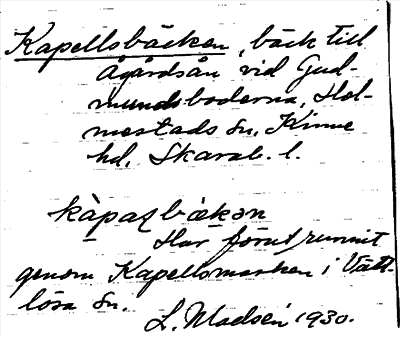 Kapellsbäcken, bäck till
Ågårdsån vid Gud-
mundsboderna, Hol-
mestads sn, Kinne
hd, Skarab. l.
kàpaɫbækən
Har förut runnit
genom Kapellsmarken i Vätt-
lösa sn.
L. Madsén 1930.